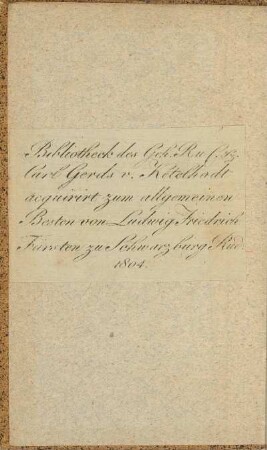 Bibliotheck des Geh. R. u. C. z.
Carl Gerds v. Ketelhodt
acquirirt zum allgemeinen
Besten von Ludwig Friedrich
Fürsten zu Schwarzburg Rud.
1804.